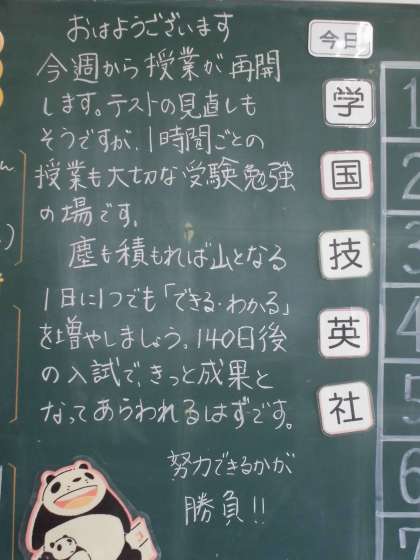 おはようございます
今週から授業が再開
します。テストの見直しも
そうですが、1時間ごとの
授業も大切な受験勉強
の場です。
塵も積もれば山となる
1日に1つでも「できる・わかる」
を増やしましょう。140日後
の入試で、きっと成果と
なってあらわれるはずです。
努力できるかが
勝負!!
今日
学
国
技
英
社
1
2
3
4
5
6